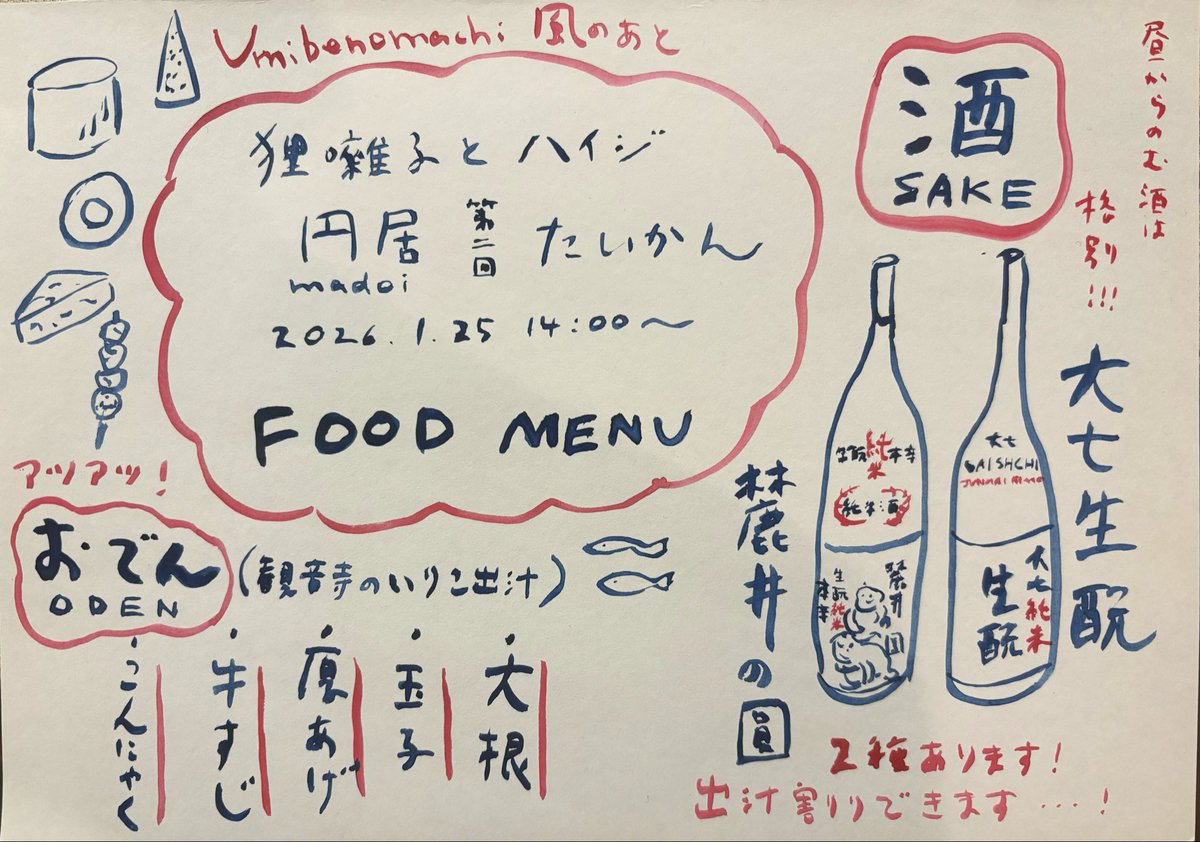 Umibenomachi 風のあと
狸囃子とハイジ
円居 第二回 たいかん
madoi
2026.1.25 14:00〜
FOOD MENU
アツアツ!
おでん
ODEN
(観音寺のいりこ出汁)
・大根
・玉子
・厚あげ
・牛すじ
・こんにゃく
酒
SAKE
昼からのむ酒は
格別!!!
大七生酛
大七
純米
大七純米
生酛
麓井の圓
生酛純米本辛
純米酒
生酛純米
本辛
2種あります!
出汁割りできます…!